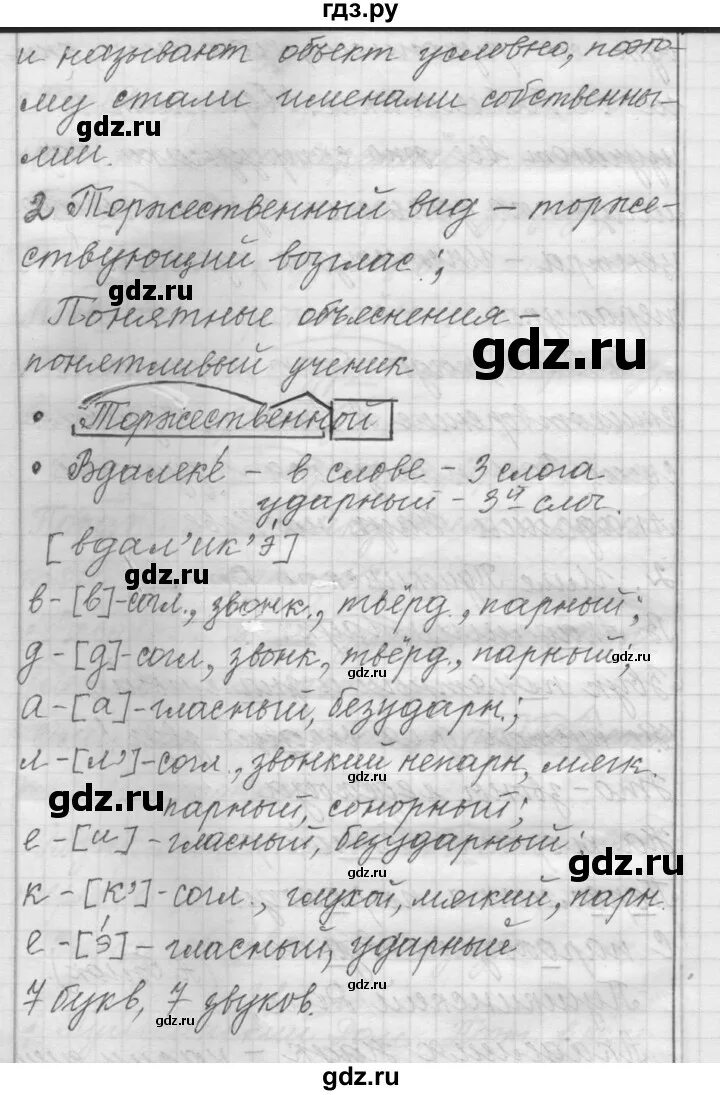 гдз.ру
и называют объект условно, поэто-
му стали именами собственны-
ми.
gdz.ru
2 Торжественный вид – торже-
ствующий возглас.;
gdz.ru
Понятные объяснения –
gdz.ru
понятливый ученик
• Торжественной
• Вдалеке́ – в слове – 3 слога
gdz.ru
ударный – 3й слог.
[вдал’ик’э́]
gdz.ru
в – [в]-согл., звонк., твёрд., парный;
д – [д]-согл., звонк, твёрд., парный;
gdz.ru
а – [а]-гласный, безударн.;
gdz.ru
л – [л’]-согл., звонкий непарн, мягк.
gdz.ru
парный, сонорный;
gdz.ru
е – [и] – гласный, безударный;
gdz.ru
к – [к’]-согл., глухой, мягкий, парн.
gdz.ru
е – [э́] – гласный, ударный
7 букв, 7 звуков.
gdz.ru
gdz.ru